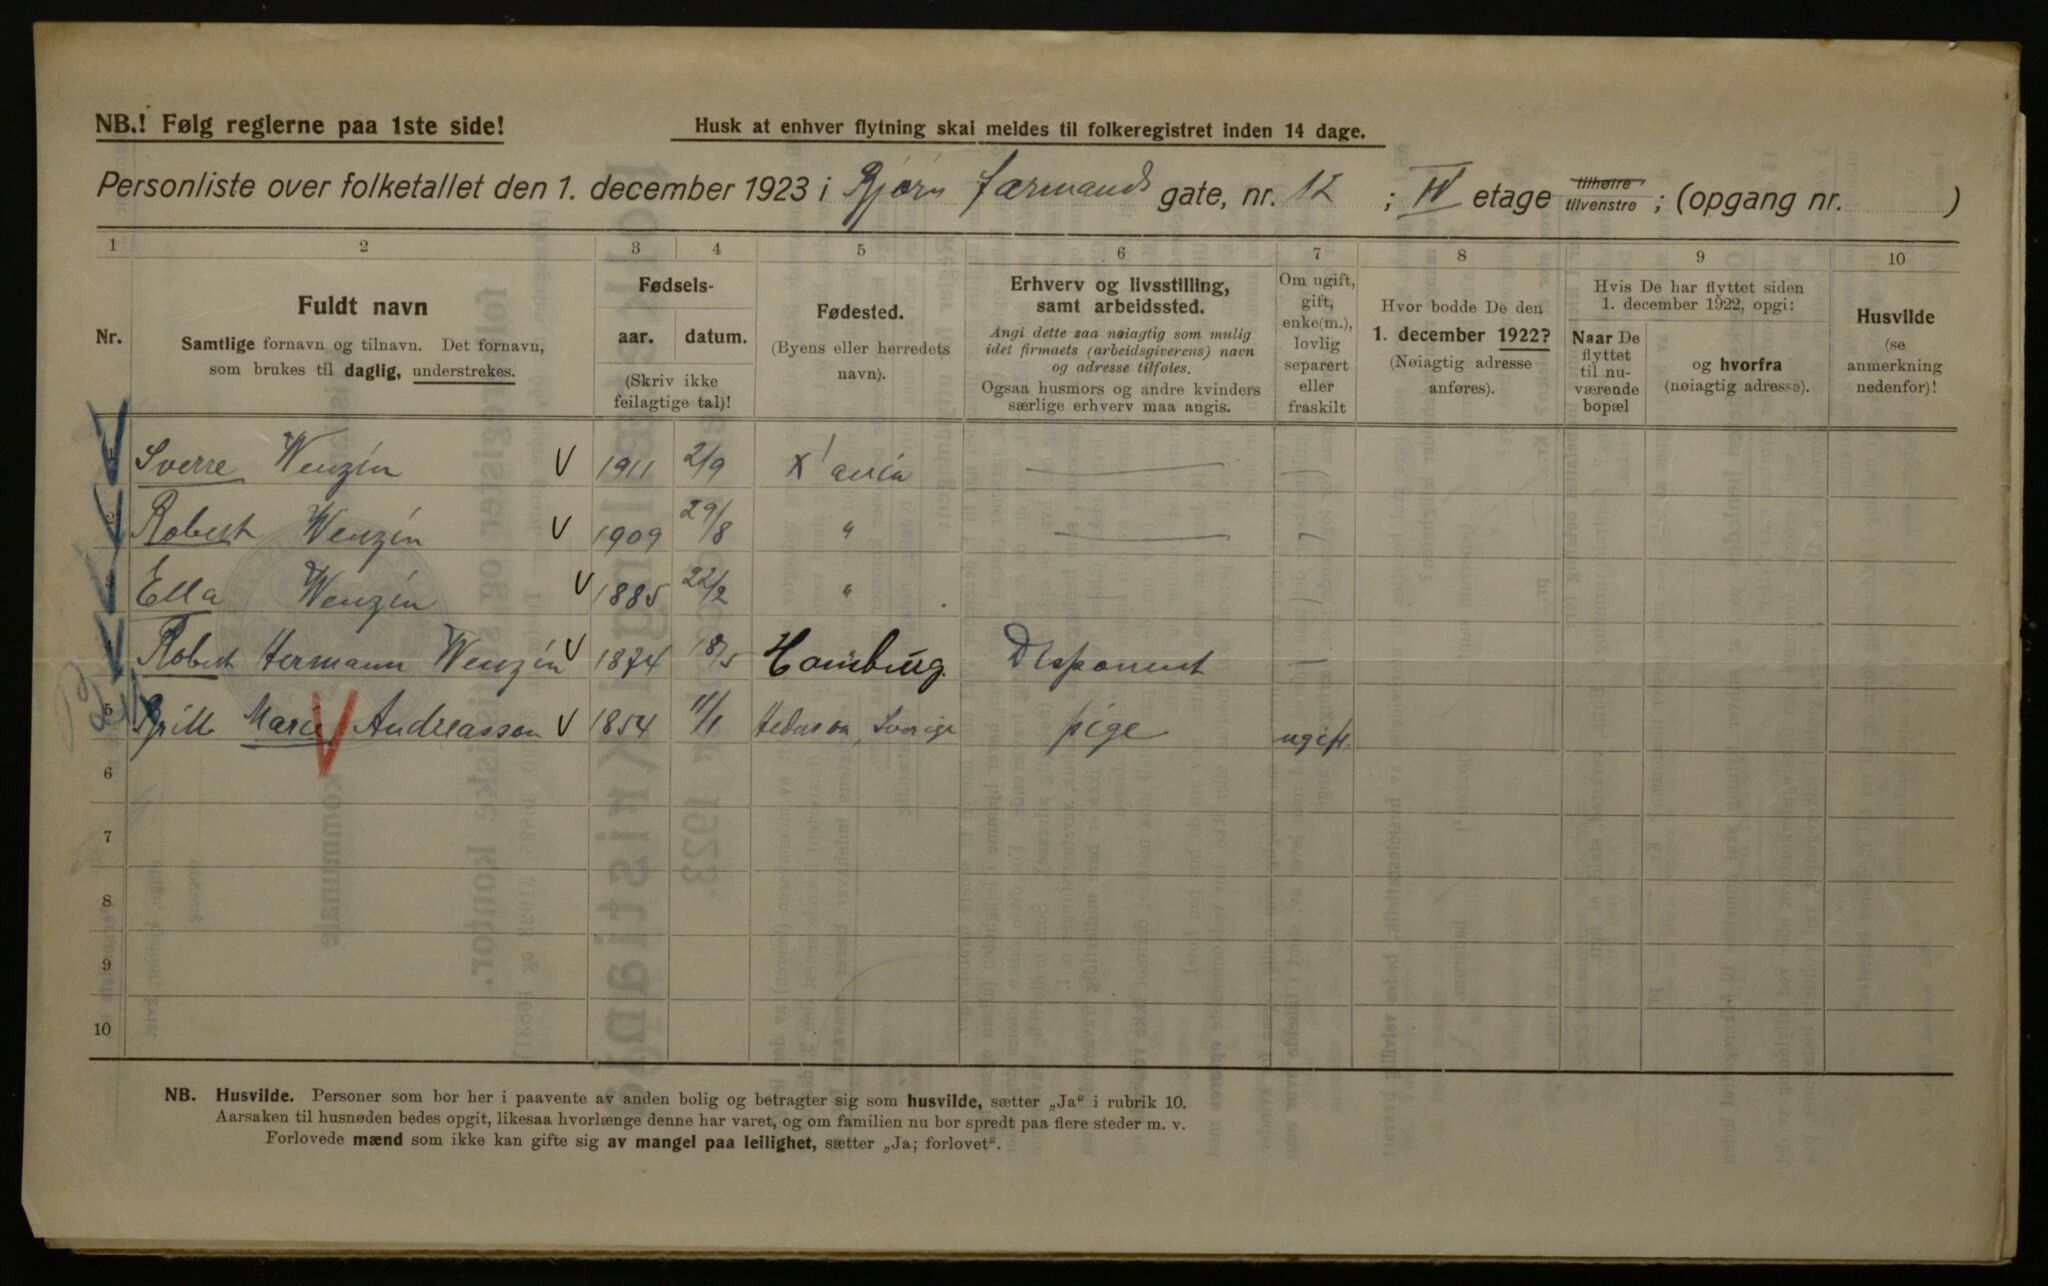 NB.! Følg reglerne paa 1ste side!
Husk at enhver flytning skal meldes til folkeregistret inden 14 dage.
Personliste over folketallet den 1. december 1923 i Bjørn Farmands gate, nr. 12 ; IV etage tilhøire tilvenstre ; (opgang nr. )
1 2 3 4 5 6 7 8 9 10
Nr.
Fuldt navn
Samtlige fornavn og tilnavn. Det fornavn,
som brukes til daglig, understrekes.
Fødsels-
aar. datum.
(Skriv ikke
feilagtige tal)!
Fødested.
(Byens eller herredets
navn).
Erhverv og livsstilling,
samt arbeidssted.
Angi dette saa nøiagtig som mulig
idet firmaets (arbeidsgiverens) navn
og adresse tilføies.
Ogsaa husmors og andre kvinders
særlige erhverv maa angis.
Om ugift,
gift,
enke(m.),
lovlig
separert
eller
fraskilt
Hvor bodde De den
1. december 1922?
(Nøiagtig adresse
anføres).
Hvis De har flyttet siden
1. december 1922, opgi:
Naar De
flyttet
til nu-
værende
bopæl
og hvorfra
(nøiagtig adresse).
Husvilde
(se
anmerkning
nedenfor)!
Sverre Wenzin V 1911 2/9 X'ania —
2 Robert Wenzin V 1909 29/8 " —
Ella Wenzin V 1885 22/2 "
Robert Hermann Wenzin V 1874 18/5 Hamburg. Disponent —
5 Britt Marie Andreasson V 1854 11/1 Sverige pige ugift.
6
7
8
9
10
NB. Husvilde. Personer som bor her i paavente av anden bolig og betragter sig som husvilde, sætter „Ja" i rubrik 10.
Aarsaken til husnøden bedes opgit, likesaa hvorlænge denne har varet, og om familien nu bor spredt paa flere steder m. v.
Forlovede mænd som ikke kan gifte sig av mangel paa leilighet, sætter „Ja; forlovet".